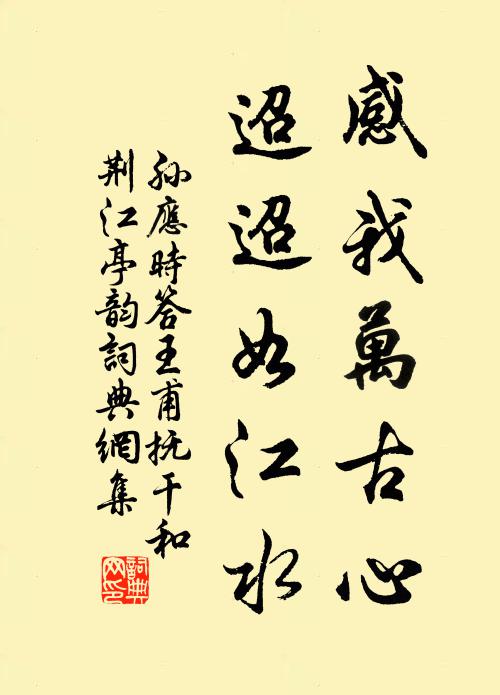 感我萬古心
迢迢如江水
孫應時答王甫抚干和
荆江亭韵詞典網集
詞典
网印